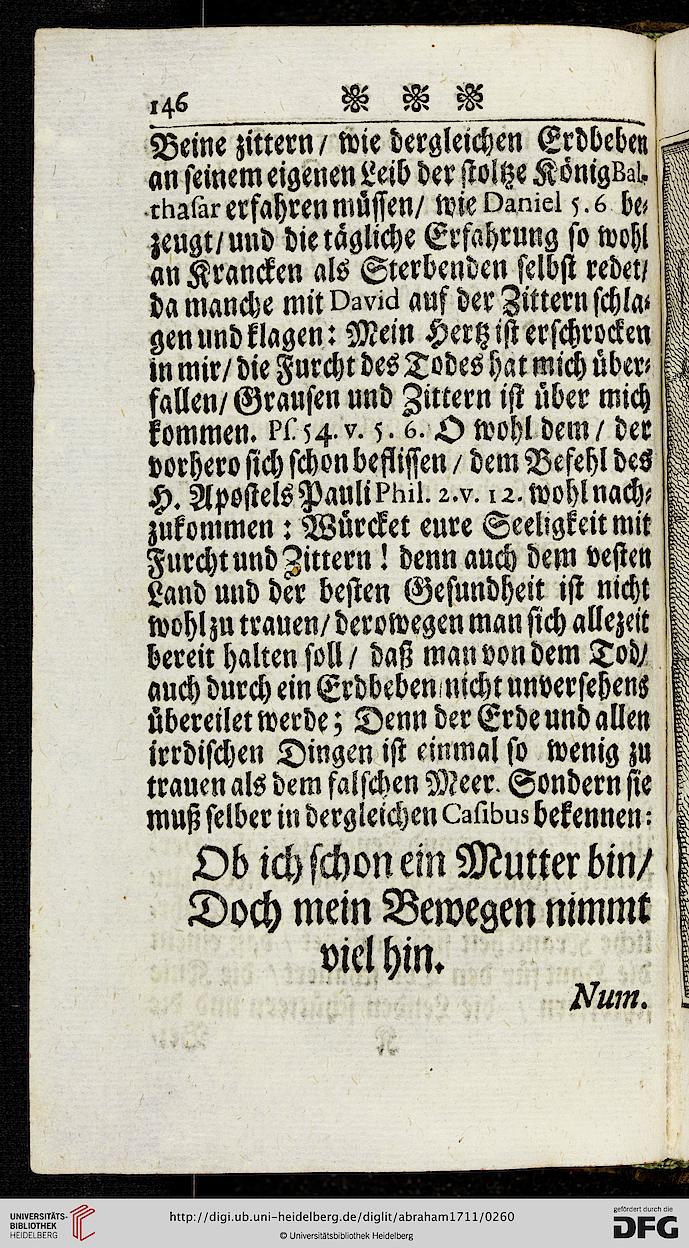 146
Beine zittern / wie dergleichen Erdbeben
an seinem eigenen Leib der stoltze König Bal-
thasar erfahren müssen / wie Daniel 5. 6 be-
zeugt / und die tägliche Erfahrung so wohl
an Krancken als Sterbenden selbst redet /
da manche mit David auf der Zittern schla-
gen und klagen: Mein Hertz ist erschrocken
in mir / die Furcht des Todes hat mich über-
fallen / Grausen und Zittern ist über mich
kommen. Ps. 54. v. 5. 6. O wohl dem / der
vorhero sich schon beflissen / dem Befehl des
H. Apostels Pauli Phil. 2. v. 12. wohl nach-
zukommen : Würcket eure Seeligkeit mit
Furcht und Zittern ! denn auch dem vesten
Land und der besten Gesundheit ist nicht
wohl zu trauen / derowegen man sich allezeit
bereit halten soll / daß man von dem Tod /
auch durch ein Erdbeben nicht unversehens
übereilet werde ; Denn der Erde und allen
irrdischen Dingen ist einmal so wenig zu
trauen als dem falschen Meer. Sondern sie
muß selber in dergleichen Casibus bekennen:
Ob ich schon ein Mutter bin /
Doch mein Bewegen nimmt
viel hin.
Num.
UNIVERSITÄTS-
BIBLIOTHEK
HEIDELBERG
http://digi.ub.uni-heidelberg.de/diglit/abraham1711/0260
© Universitätsbibliothek Heidelberg
gefördert durch die
DFG